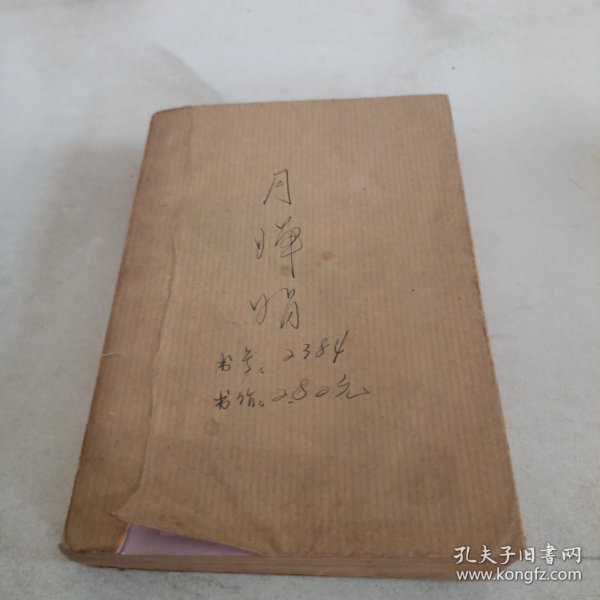 月
婵
娟
书号:2384
书价:2.80元
孔夫子旧书网
www.kongfz.com